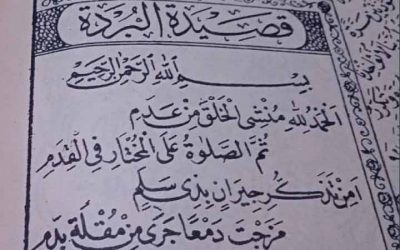 قصيدة البردة
بسم الله الرحمن الرحيم
الحمد لله منشي الخلق من عدم
ثم الصلوة على المختار في القدم
امن تذكر جيران بذي سلم
مزجت دمعا جرى من مقلة بدم